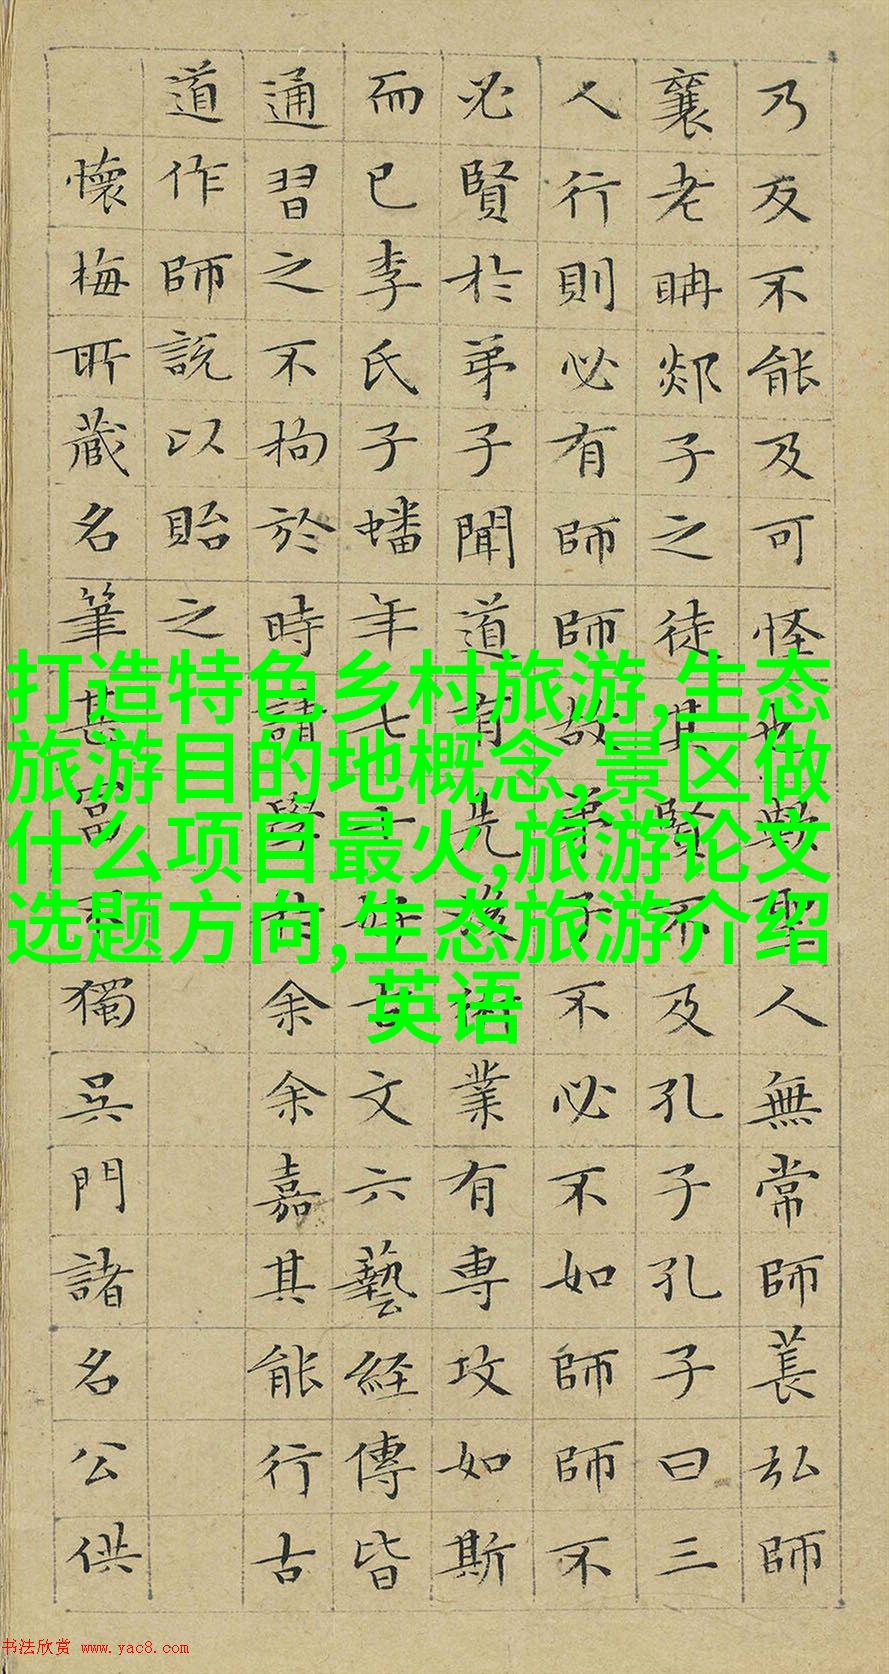 乃反不能及可怪也歟聖人無常師萇弘師
襄老聃郯子之徒其賢不及孔子孔子曰三
人行則必有師師故弟子不必不如師師不
必賢於弟子聞道有先後術業有専攻如斯
而已李氏子蟠年七十好古文六藝経傳皆
通習之不拘於時請學於余余嘉其能行古
道作師說以貽之
懷梅所藏名筆甚富不獨吳門諸名公供
打造特色乡村旅游,生态
旅游目的地概念,景区做
什么项目最火,旅游论文
选题方向,生态旅游介绍
英语
书法欣赏 www.yac8.com